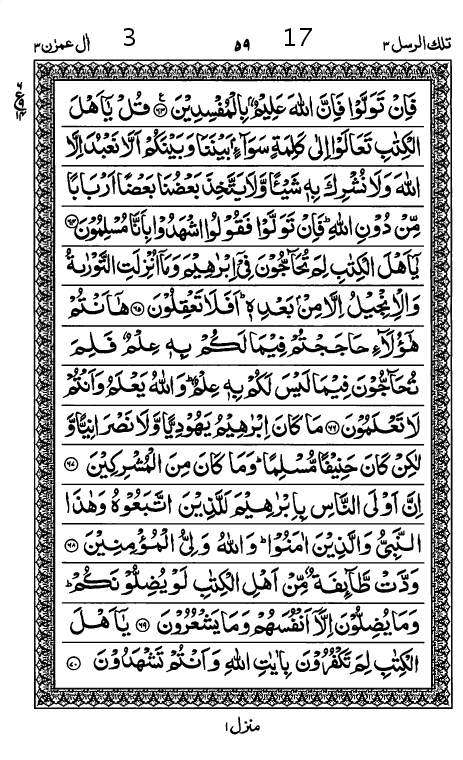 تلك الرسل ٣ 17 ٥٩ 3 ال عمرٰن ٣
فَاِنْ تَوَلَّوْا فَاِنَّ اللّٰهَ عَلِيْمٌۢ بِالْمُفْسِدِيْنَ ﴿٦٣﴾ ع قُلْ يٰٓاَهْلَ
الْكِتٰبِ تَعَالَوْا اِلٰى كَلِمَةٍ سَوَآءٍۢ بَيْنَنَا وَبَيْنَكُمْ اَلَّا نَعْبُدَ اِلَّا
اللّٰهَ وَلَا نُشْرِكَ بِهٖ شَيْئًا وَّلَا يَتَّخِذَ بَعْضُنَا بَعْضًا اَرْبَابًا
مِّنْ دُوْنِ اللّٰهِ ؕ فَاِنْ تَوَلَّوْا فَقُوْلُوا اشْهَدُوْا بِاَنَّا مُسْلِمُوْنَ ﴿٦٤﴾
يٰٓاَهْلَ الْكِتٰبِ لِمَ تُحَآجُّوْنَ فِيْٓ اِبْرٰهِيْمَ وَمَآ اُنْزِلَتِ التَّوْرٰىةُ
وَالْاِنْجِيْلُ اِلَّا مِنْۢ بَعْدِهٖ ؕ اَفَلَا تَعْقِلُوْنَ ﴿٦٥﴾ هٰٓاَنْتُمْ
هٰٓؤُلَآءِ حَاجَجْتُمْ فِيْمَا لَكُمْ بِهٖ عِلْمٌ فَلِمَ
تُحَآجُّوْنَ فِيْمَا لَيْسَ لَكُمْ بِهٖ عِلْمٌ ؕ وَاللّٰهُ يَعْلَمُ وَاَنْتُمْ
لَا تَعْلَمُوْنَ ﴿٦٦﴾ مَا كَانَ اِبْرٰهِيْمُ يَهُوْدِيًّا وَّلَا نَصْرَانِيًّا وَّ
لٰكِنْ كَانَ حَنِيْفًا مُّسْلِمًا ؕ وَمَا كَانَ مِنَ الْمُشْرِكِيْنَ ﴿٦٧﴾
اِنَّ اَوْلَى النَّاسِ بِاِبْرٰهِيْمَ لَلَّذِيْنَ اتَّبَعُوْهُ وَهٰذَا
النَّبِيُّ وَالَّذِيْنَ اٰمَنُوْا ؕ وَاللّٰهُ وَلِيُّ الْمُؤْمِنِيْنَ ﴿٦٨﴾
وَدَّتْ طَّآئِفَةٌ مِّنْ اَهْلِ الْكِتٰبِ لَوْ يُضِلُّوْنَكُمْ ؕ
وَمَا يُضِلُّوْنَ اِلَّآ اَنْفُسَهُمْ وَمَا يَشْعُرُوْنَ ﴿٦٩﴾ يٰٓاَهْلَ
الْكِتٰبِ لِمَ تَكْفُرُوْنَ بِاٰيٰتِ اللّٰهِ وَاَنْتُمْ تَشْهَدُوْنَ ﴿٧٠﴾
منزل ١